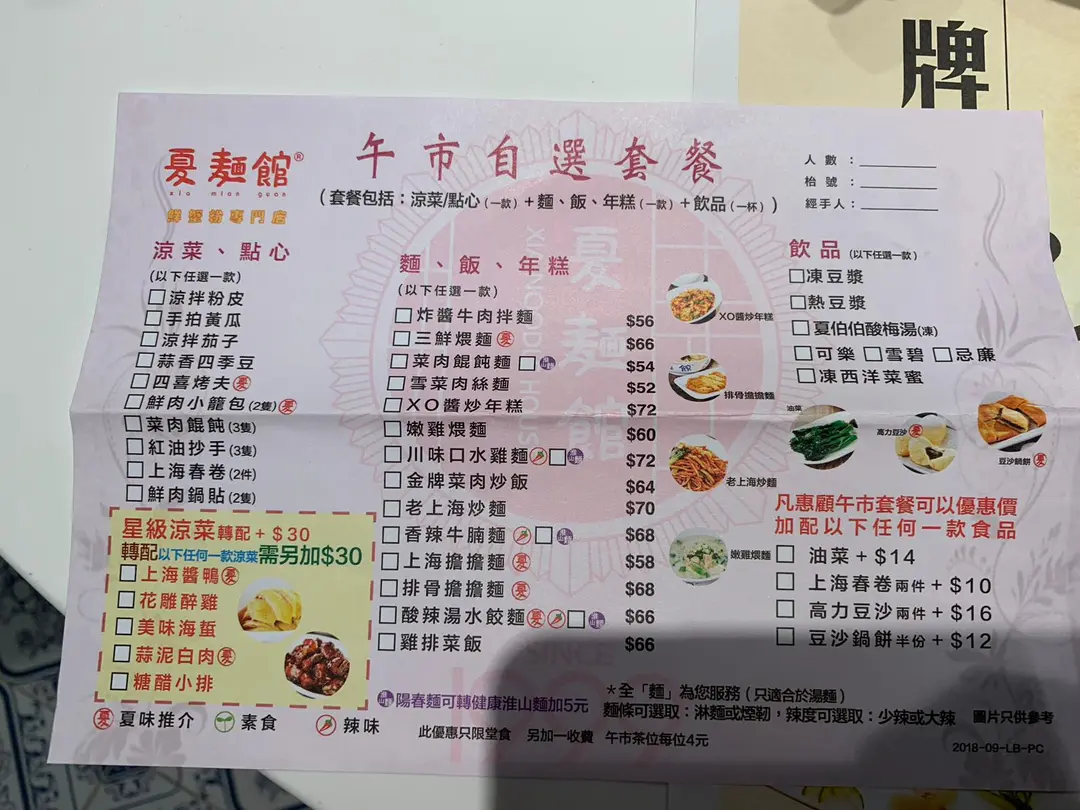 牌
夏麵館®
xia mian guan
午市自選套餐
(套餐包括：涼菜/點心(一款)+麵、飯、年糕(一款)+飲品(一杯))
人數：
枱號：
經手人：
涼菜、點心
(以下任選一款)
涼拌粉皮
手拍黃瓜
涼拌茄子
蒜香四季豆
四喜烤夫 夏
鮮肉小籠包(2隻) 夏
菜肉餛飩(3隻)
紅油抄手(3隻)
上海春卷(2件)
鮮肉鍋貼(2隻)
星級涼菜轉配+$30
轉配以下任何一款涼菜需另加$30
上海醬鴨 夏
花雕醉雞
美味海蜇
蒜泥白肉 夏
糖醋小排
夏 夏味推介
素食
辣味
麵、飯、年糕
(以下任選一款)
炸醬牛肉拌麵 $56
三鮮煨麵 夏 $66
菜肉餛飩麵 $54
雪菜肉絲麵 $52
XO醬炒年糕 $72
嫩雞煨麵 $60
川味口水雞麵 $72
金牌菜肉炒飯 $64
老上海炒麵 $70
香辣牛腩麵 $68
上海擔擔麵 夏 $58
排骨擔擔麵 夏 $68
酸辣湯水餃麵 夏 $66
雞排菜飯 $66
夏麵館
XIA NOODLE HOUSE
SINCE
XO醬炒年糕
排骨擔擔麵
老上海炒麵
嫩雞煨麵
飲品(以下任選一款)
凍豆漿
熱豆漿
夏伯伯酸梅湯(凍)
可樂 雪碧 忌廉
凍西洋菜蜜
油菜
高力豆沙 夏
豆沙鍋餅 夏
凡惠顧午市套餐可以優惠價
加配以下任何一款食品
油菜+$14
上海春卷兩件+$10
高力豆沙兩件+$16
豆沙鍋餅半份+$12
陽春麵可轉健康淮山麵加5元
此優惠只限堂食 另加一收費 午市茶位每位4元
*全「麵」為您服務(只適合於湯麵)
麵條可選取：淋麵或煙韌，辣度可選取：少辣或大辣 圖片只供參考
2018-09-LB-PC